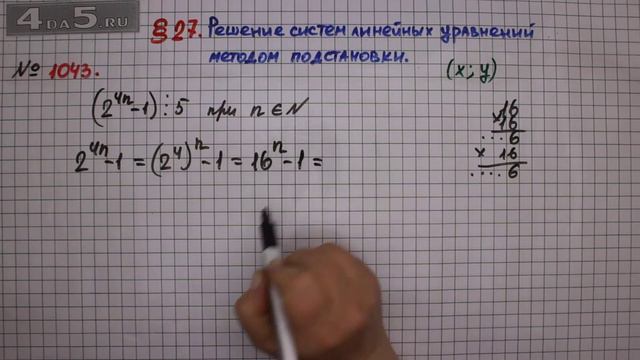 4DA5.RU
§27. Решение систем линейных уравнений
методом подстановки.
№ 1043.
(x; y)
(2^{4n}-1)⋮5 при n ∈ N
2^{4n}-1 = (2^4)^n-1 = 16^n-1 =
16
× 16
...6
× 16
....6